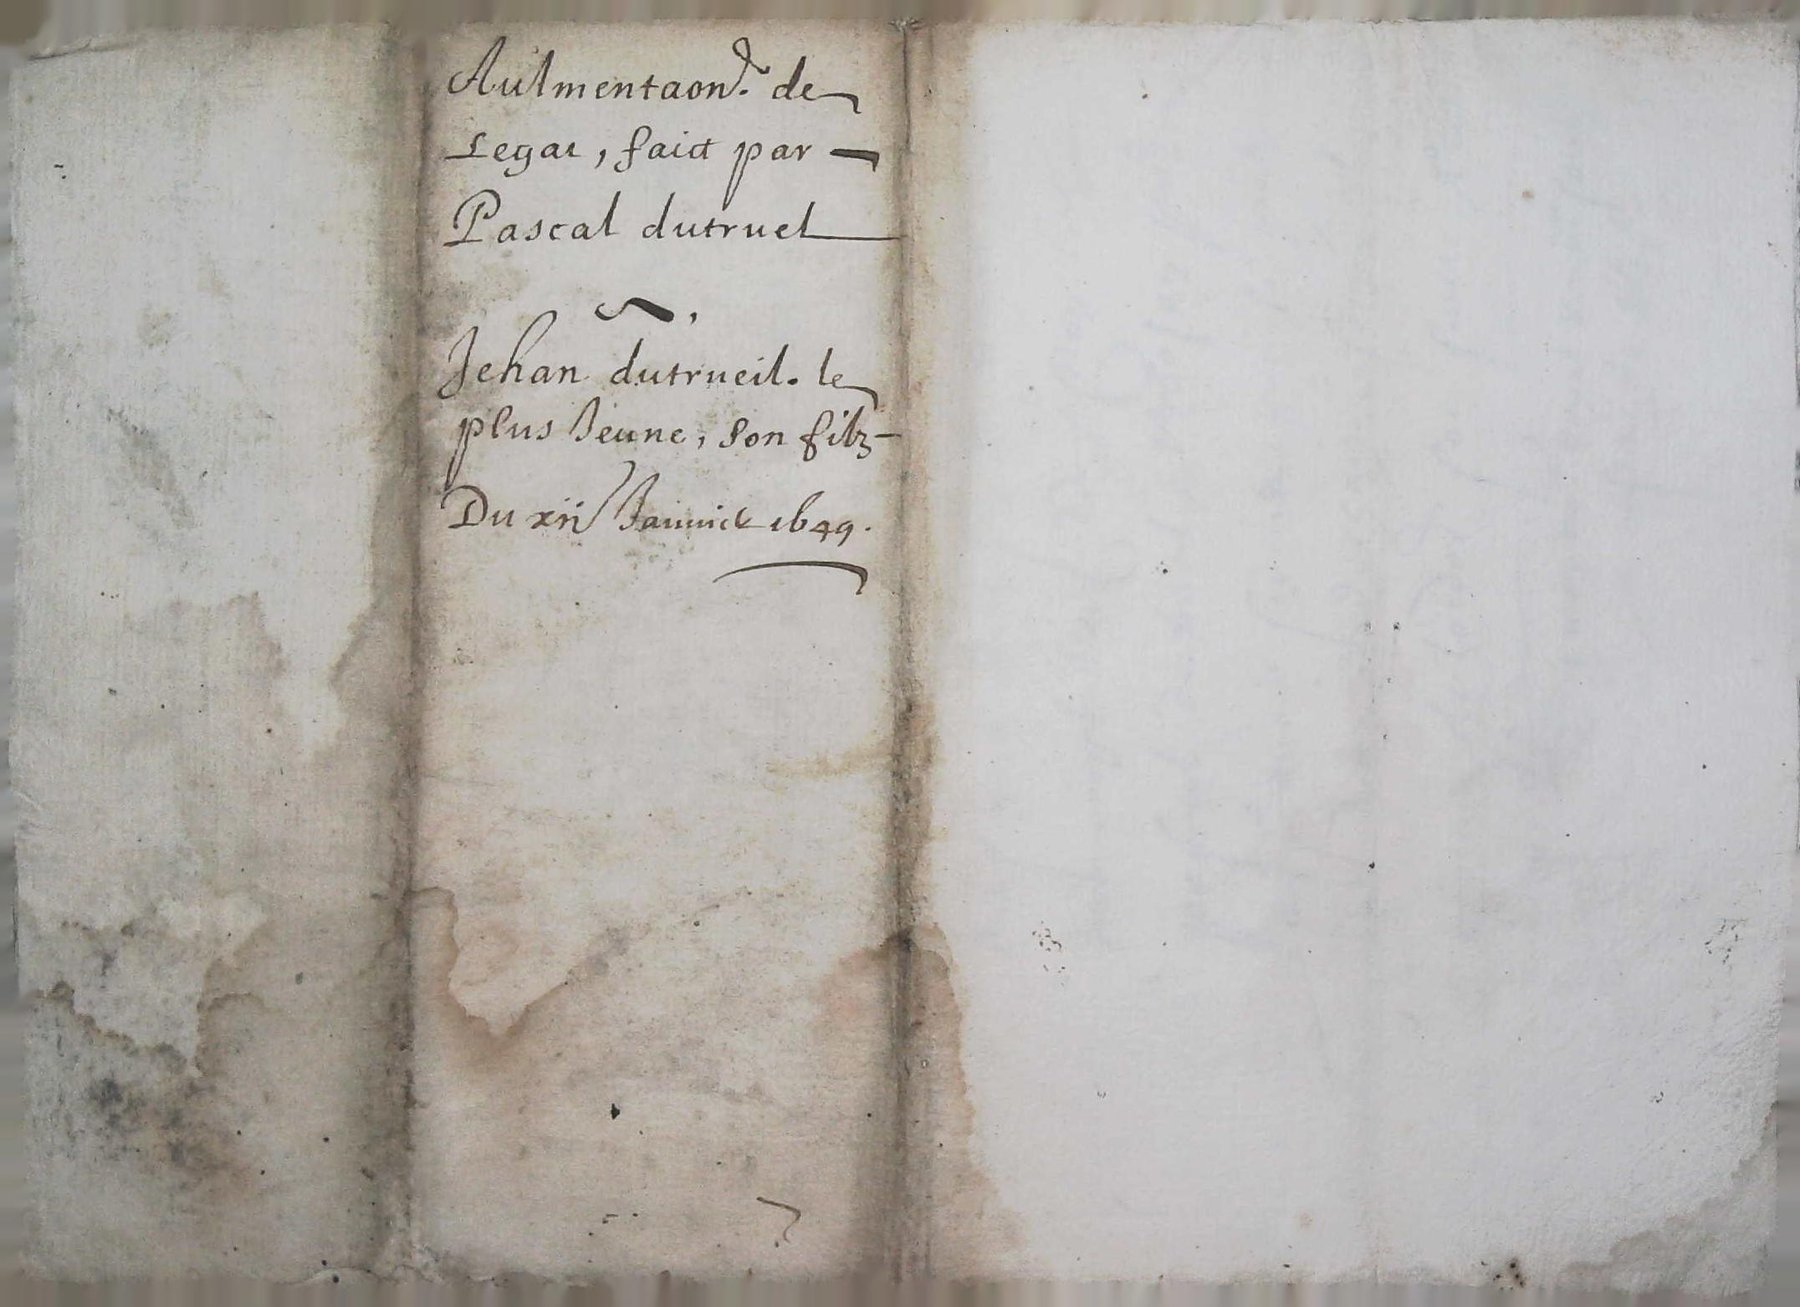 Aulmentaon. de
Legat, faict par
Pascal dutruel
Jehan dutrueil. le
plus Jeune, son filz
Du xii 1649.